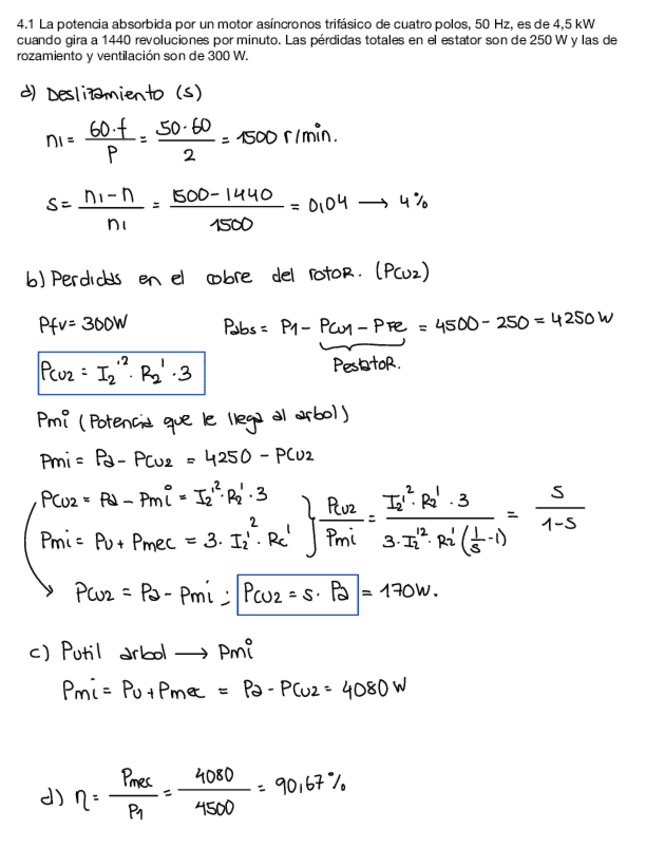 4.1 La potencia absorbida por un motor asíncronos trifásico de cuatro polos, 50 Hz, es de 4,5 kW
cuando gira a 1440 revoluciones por minuto. Las pérdidas totales en el estator son de 250 W y las de
rozamiento y ventilación son de 300 W.
a) Deslizamiento (s)
n1 = 60·f / P = 50·60 / 2 = 1500 r/min.
s = n1 - n / n1 = 1500 - 1440 / 1500 = 0,04 → 4%
b) Perdidas en el cobre del rotor. (Pcu2)
Pfv = 300W
Pabs = P1 - Pcu1 - PFe = 4500 - 250 = 4250 W
Pestator.
Pcu2 = I2'² · R2' · 3
Pmi (Potencia que le llega al arbol)
Pmi = Pa - Pcu2 = 4250 - Pcu2
Pcu2 = Pa - Pmi = I2'² · R2' · 3
Pmi = Pu + Pmec = 3 · I2'² · Rc'
Pcu2 / Pmi = I2'² · R2' · 3 / 3 · I2'² · R2' (1/s - 1) = s / 1-s
Pcu2 = Pa - Pmi ; Pcu2 = s · Pa = 170W.
c) Putil arbol → Pmi
Pmi = Pu + Pmec = Pa - Pcu2 = 4080 W
d) η = Pmec / P1 = 4080 / 4500 = 90,67%